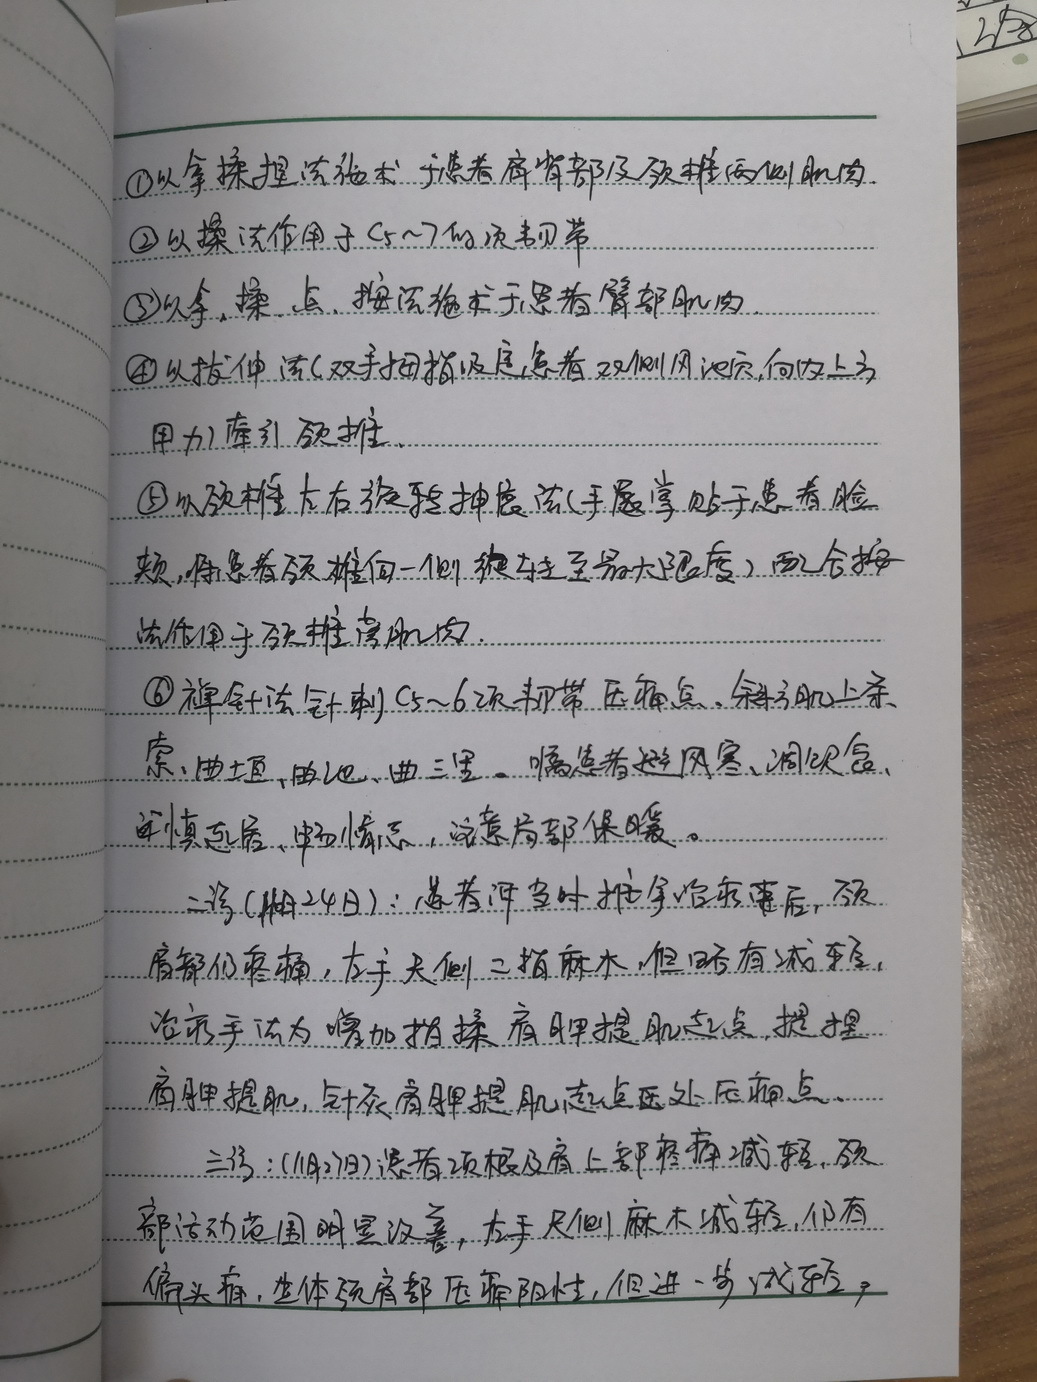 ①以拿揉捏法施术于患者肩背部及颈椎两侧肌肉.
②以揉法作用于C5~7的项韧带
③以拿、揉、点、按法施术于患者臂部肌肉.
④以拔伸法(双手拇指顶住患者双侧风池穴,向内上方
用力)牵引颈椎.
⑤以颈椎左右旋转抻展法(手展掌贴于患者脸
颊,将患者颈椎向一侧旋转至最大限度)配合按
法作用于颈椎旁肌肉.
⑥禅针法针刺C5~6项韧带压痛点、斜方肌上条
索、曲垣、曲池、曲三里。嘱患者避风寒、调饮食、
慎起居、畅情志,注意局部保暖。
二诊(11月24日):患者诉当时推拿治疗结束后,颈
肩部仍疼痛,左手尺侧二指麻木,但略有减轻,
治疗手法为增加指揉肩胛提肌起点,提捏
肩胛提肌,针灸肩胛提肌起点压处压痛点.
三诊:(11月27日)患者项根及肩上部疼痛减轻,颈
部活动范围明显改善,左手尺侧麻木减轻,仍有
偏头痛,查体颈肩部压痛阳性,但进一步减轻,
诊